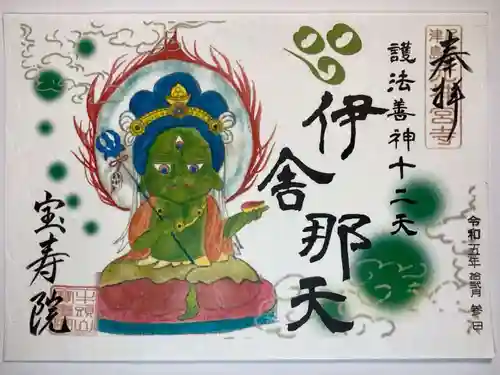 奉拝
護法善神十二天
伊舎那天
令和五年 拾弐月 参日
宝寿院